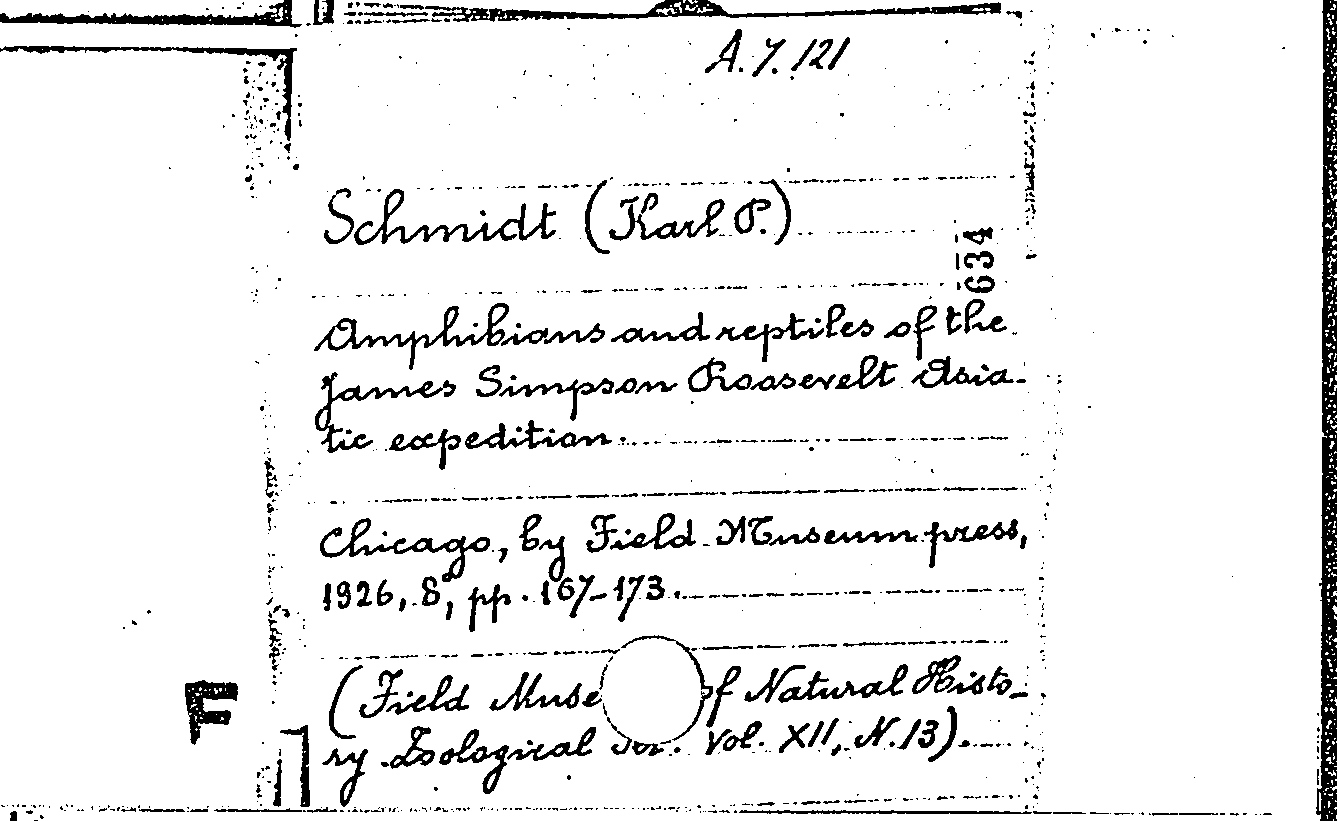 A.7.121
Schmidt (Karl P.)
634
Amphibians and reptiles of the
James Simpson Roosevelt Asia-
tic expedition.
Chicago, by Field Museum press,
1926, 8°, pp. 167-173.
(Field Muse of Natural Histo-
ry Zoological Vol. XII, N.13).
F